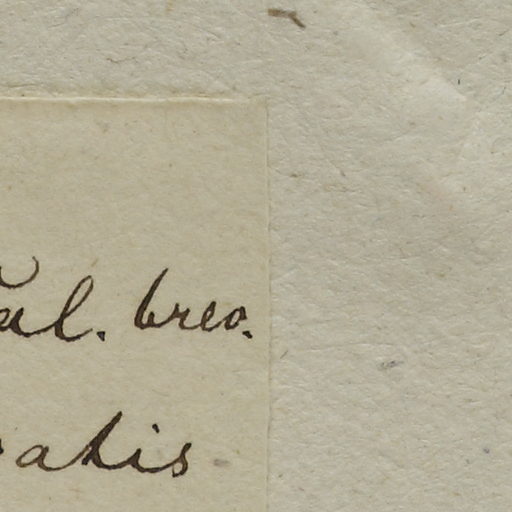 al. brev.
atis